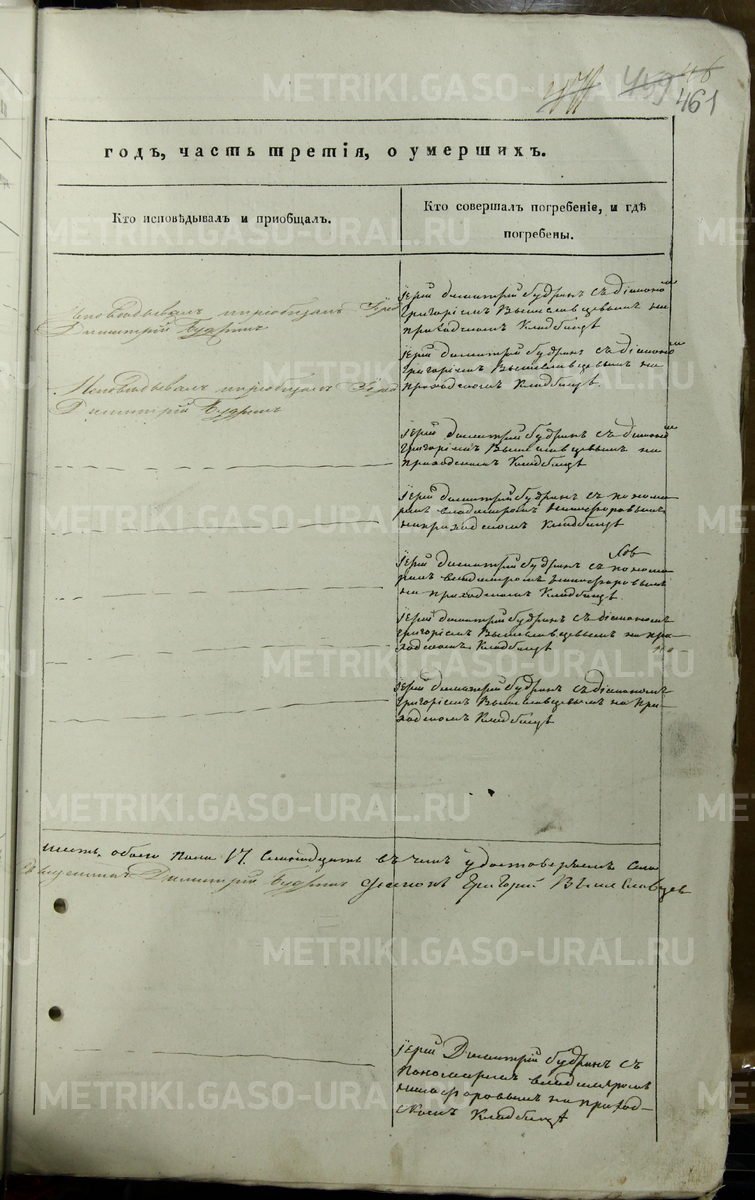 461
годъ, часть третія, о умершихъ.
Кто исповѣдывалъ и приобщалъ.
Кто совершалъ погребеніе, и гдѣ
погребены.
Исповѣдывалъ и приобщалъ Іерей
Димитрій Будринъ
Іерей Димитрій Будринъ съ діакономъ
Григоріемъ Вышеславцевымъ на
приходскомъ Кладбищѣ
Іерей Димитрій Будринъ съ діакономъ
Григоріемъ Вышеславцевымъ на
приходскомъ Кладбищѣ.
Исповѣдывалъ и приобщалъ Іерей
Димитрій Будринъ
Іерей Димитрій Будринъ съ діакономъ
Григоріемъ Вышеславцевымъ на
приходскомъ Кладбищѣ
Іерей Димитрій Будринъ съ понома-
ремъ Владимиромъ Никифоровымъ
на приходскомъ Кладбищѣ
Іерей Димитрій Будринъ съ понома-
ремъ Владимиромъ Никифоровымъ
на приходскомъ Кладбищѣ
Іерей Димитрій Будринъ съ діакономъ
Григоріемъ Вышеславцевымъ на при-
ходскомъ Кладбищѣ
Іерей Димитрій Будринъ съ діакономъ
Григоріемъ Вышеславцевымъ на При-
ходскомъ Кладбищѣ
обоего пола 17. въ чемъ удостовѣряемъ
Священникъ Димитрій Будринъ Діаконъ Григорій Вышеславцевъ
Іерей Димитрій Будринъ съ
Пономаремъ Владимиромъ
Никифоровымъ на приход-
скомъ Кладбищѣ
METRIKI.GASO-URAL.RU